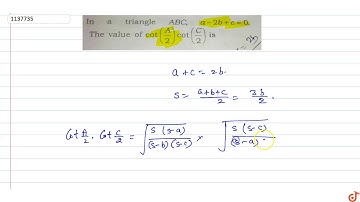 1137735
In a triangle ABC, a-2b+c=0.
The value of cot(A/2) cot(C/2) is
a+c=2b.
s= (a+b+c)/2 = 3b/2.
Cot A/2 . Cot C/2 = √(s(s-a)/(s-b)(s-c)) × √(s(s-c)/(s-a)